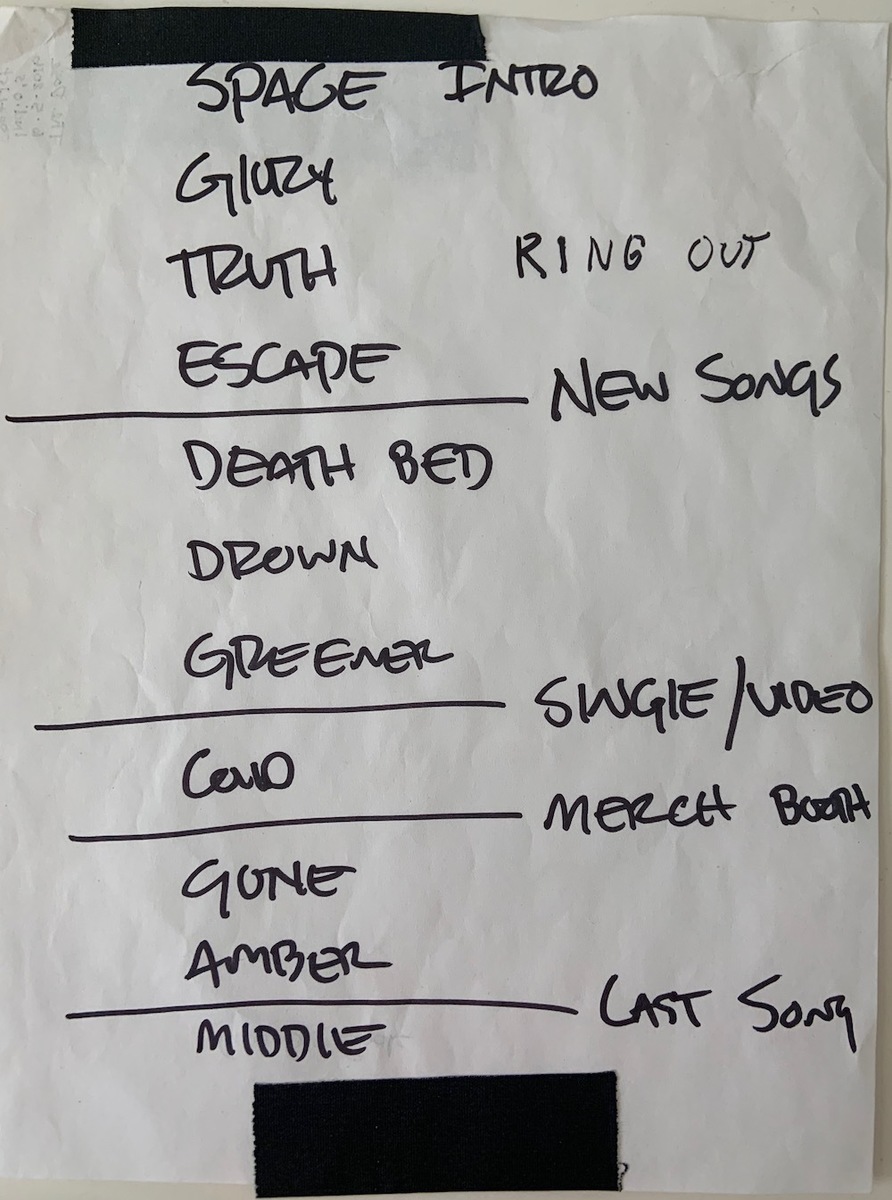 SPACE INTRO
GlORY
TRUTH RING OUT
ESCAPE
NEW SONGS
DEATH BED
DROWN
GREENER
SINGlE/VIDEO
COLD
MERCH BOOTH
GONE
AMBER
LAST SONG
MIDDlE